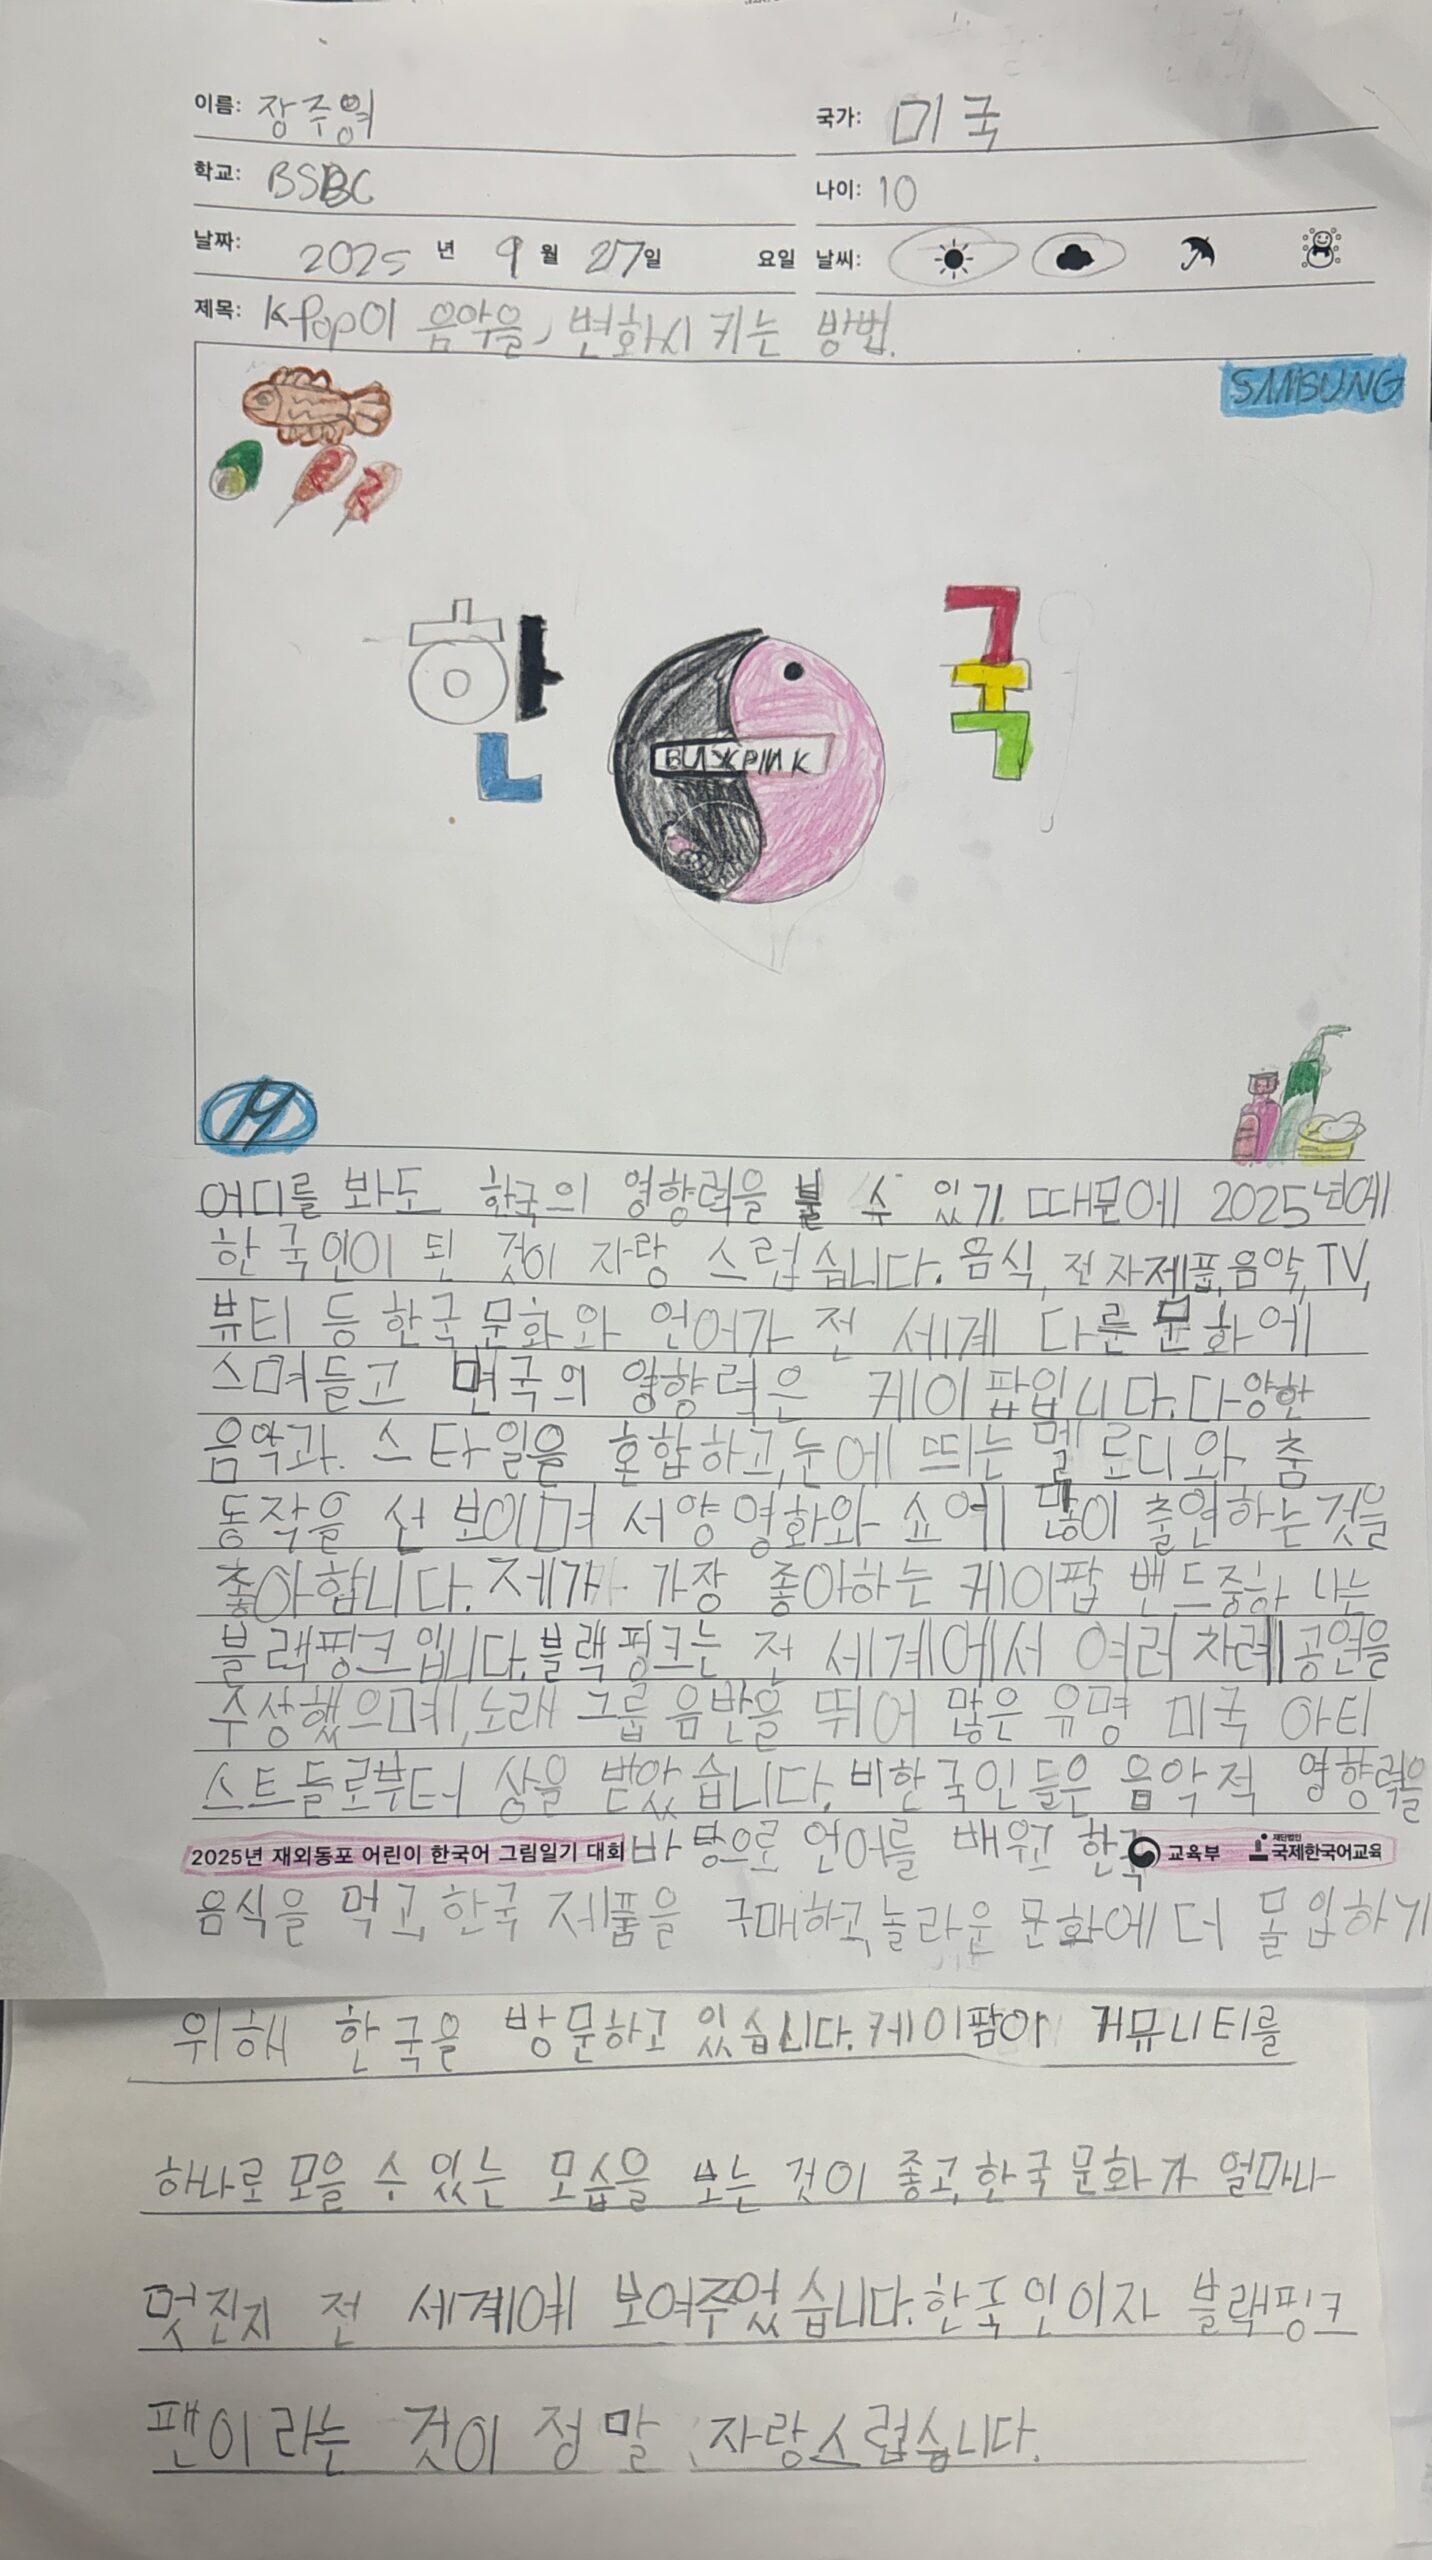 이름: 장주영
국가: 미국
학교: BSBC
나이: 10
날짜: 2025년 9월 27일 요일 날씨:
제목: Kpop이 음악을 변화시키는 방법.
SAMSUNG
한 국
BLAKPINK
어디를 봐도 한국의 영향력을 볼 수 있기 때문에 2025년에
한국인이 된 것이 자랑 스럽습니다. 음식, 전자제품, 음악, TV,
뷰티 등 한국 문화와 언어가 전 세계 다른 문화에
스며들고 한국의 영향력은 케이팝입니다. 다양한
음악과 스타일을 혼합하고, 눈에 띄는 멜로디와 춤
동작을 선보이며 서양 영화와 쇼에 많이 출연하는 것을
좋아합니다. 제가 가장 좋아하는 케이팝 밴드중하 나는
블랙핑크입니다. 블랙핑크는 전 세계에서 여러 차례 공연을
수상했으며, 노래 그룹 음반을 뛰어 많은 유명 미국 아티
스트들로부터 상을 받았습니다. 비한국인들은 음악적 영향력을
2025년 재외동포 어린이 한국어 그림일기 대회 바탕으로 언어를 배우고 한국 교육부 재단법인 국제한국어교육
음식을 먹고, 한국 제품을 구매하고, 놀라운 문화에 더 몰입하기
위해 한국을 방문하고 있습니다. 케이팝이 커뮤니티를
하나로 모을 수 있는 모습을 보는 것이 좋고, 한국 문화가 얼마나
멋진지 전 세계에 보여주었습니다. 한국인이자 블랙핑크
팬이라는 것이 정말 자랑스럽습니다.